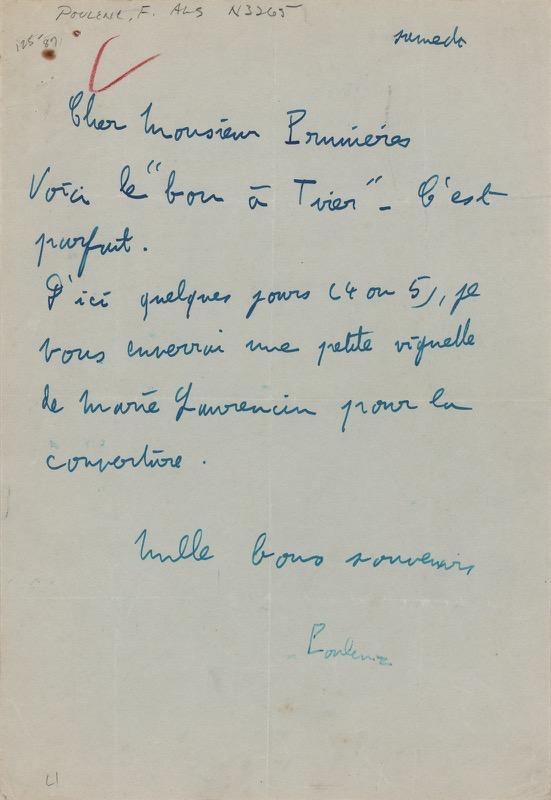 POULENC, F. ALS N3265
125-
87
samedi
Cher Monsieur Prunières
Voici le "bon à Tirer" - C'est
parfait.
D'ici quelques jours (4 ou 5), je
vous enverrai une petite vignette
de Marie Laurencin pour la
couverture.
Mille bons souvenirs
Poulenc